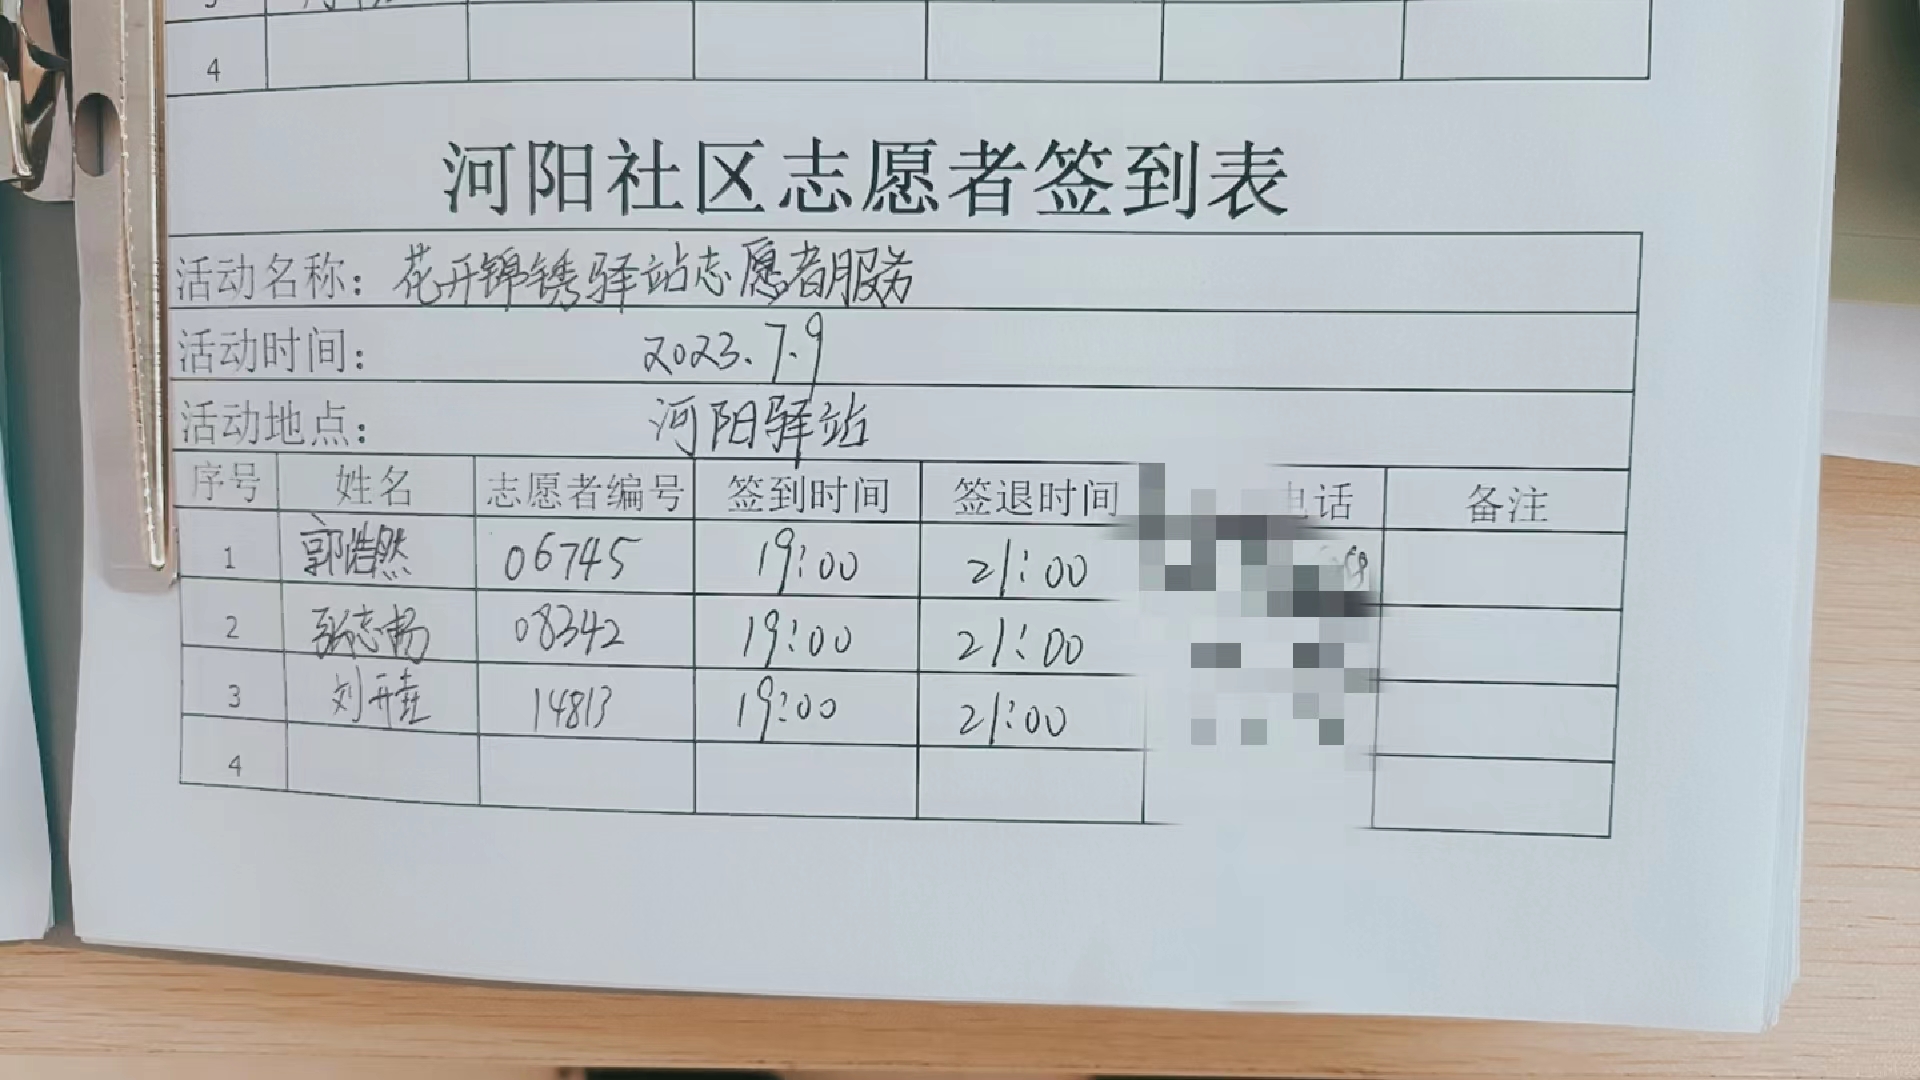 4
河阳社区志愿者签到表
活动名称：花开锦锈驿站志愿者服务
活动时间： 2023.7.9
活动地点： 河阳驿站
序号 姓名 志愿者编号 签到时间 签退时间 电话 备注
1 郭浩然 06745 19:00 21:00
2 张志杨 08342 19:00 21:00
3 刘开 14813 19:00 21:00
4